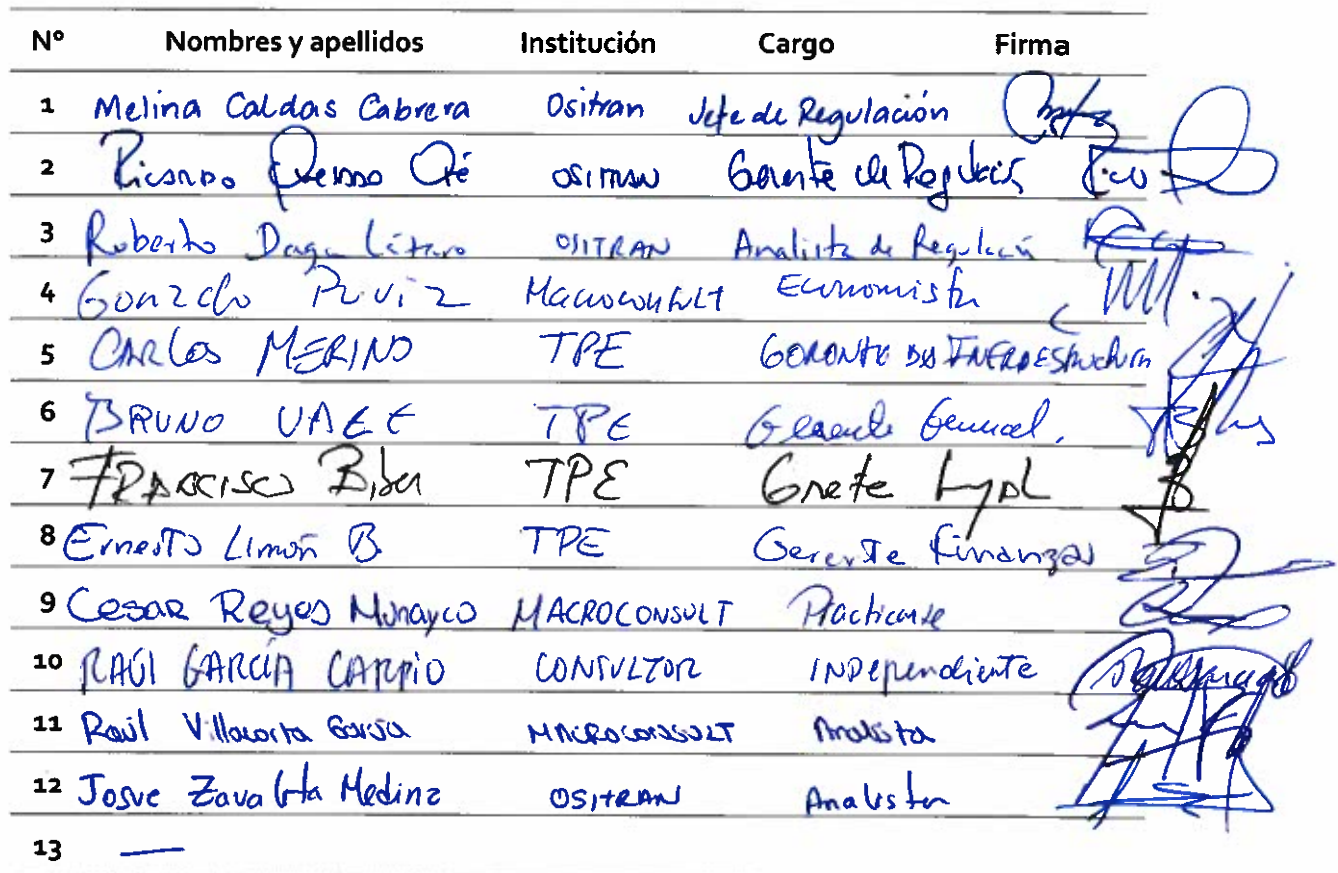 Nº Nombres y apellidos Institución Cargo Firma
1 Melina Caldas Cabrera Ositran Jefe de Regulación
2 Ricardo Oré OSITRAN Gerente de Regulación
3 Roberto Daga Lázaro OSITRAN Analista de Regulación
4 Gonzalo Ruiz Macroconsult Economista
5 CARLOS MERINO TPE GERENTE DE INFRAESTRUCTURA
6 BRUNO TPE Gerente General.
7 FRANCISCO TPE Gnete
8 Ernesto Limón B. TPE Gerente Finanzas
9 Cesar Reyes Munayco MACROCONSULT Practicante
10 RAÚL GARCÍA CARPIO CONSULTOR INDependiente
11 Raúl Villacorta García MACROCONSULT Analista
12 Josue Zavaleta Medina OSITRAN Analista
13 —